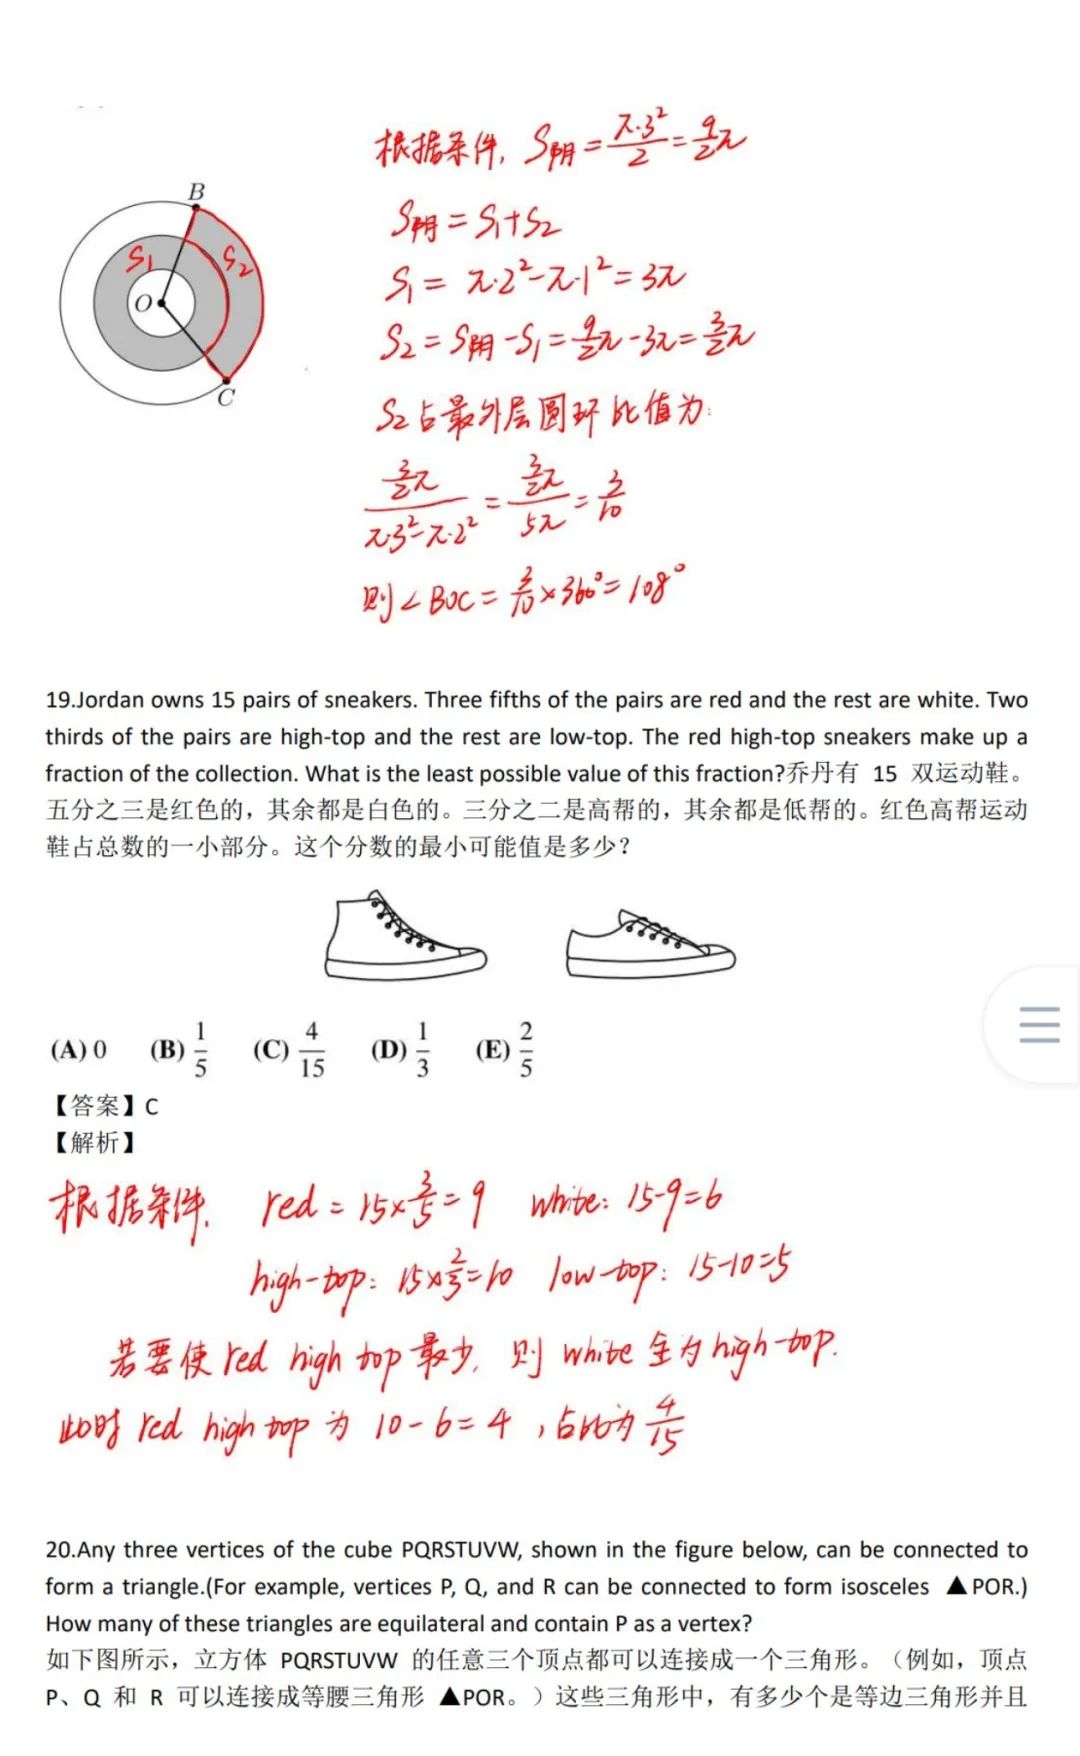 根据条件, S阴 = π·3²/2 = 9/2π
B
S阴 = S₁+S₂
S₁
S₂
S₁ = π·2²-π·1² = 3π
O
S₂ = S阴 -S₁ = 9/2π -3π = 3/2π
C
S₂占最外层圆环比值为:
3/2π / π·3²-π·2² = 3/2π / 5π = 3/10
则∠BOC = 3/10 × 360° = 108°
19.Jordan owns 15 pairs of sneakers. Three fifths of the pairs are red and the rest are white. Two
thirds of the pairs are high-top and the rest are low-top. The red high-top sneakers make up a
fraction of the collection. What is the least possible value of this fraction?乔丹有 15 双运动鞋。
五分之三是红色的，其余都是白色的。三分之二是高帮的，其余都是低帮的。红色高帮运动
鞋占总数的一小部分。这个分数的最小可能值是多少？
(A) 0 (B) 1/5 (C) 4/15 (D) 1/3 (E) 2/5
【答案】C
【解析】
根据条件, red = 15×3/5 = 9 white: 15-9=6
high-top: 15×2/3=10 low-top: 15-10=5
若要使 red high top 最少, 则 white 全为 high-top.
此时 red high top 为 10-6=4 , 占比为 4/15
20.Any three vertices of the cube PQRSTUVW, shown in the figure below, can be connected to
form a triangle.(For example, vertices P, Q, and R can be connected to form isosceles ▲POR.)
How many of these triangles are equilateral and contain P as a vertex?
如下图所示，立方体 PQRSTUVW 的任意三个顶点都可以连接成一个三角形。（例如，顶点
P、Q 和 R 可以连接成等腰三角形 ▲POR。）这些三角形中，有多少个是等边三角形并且